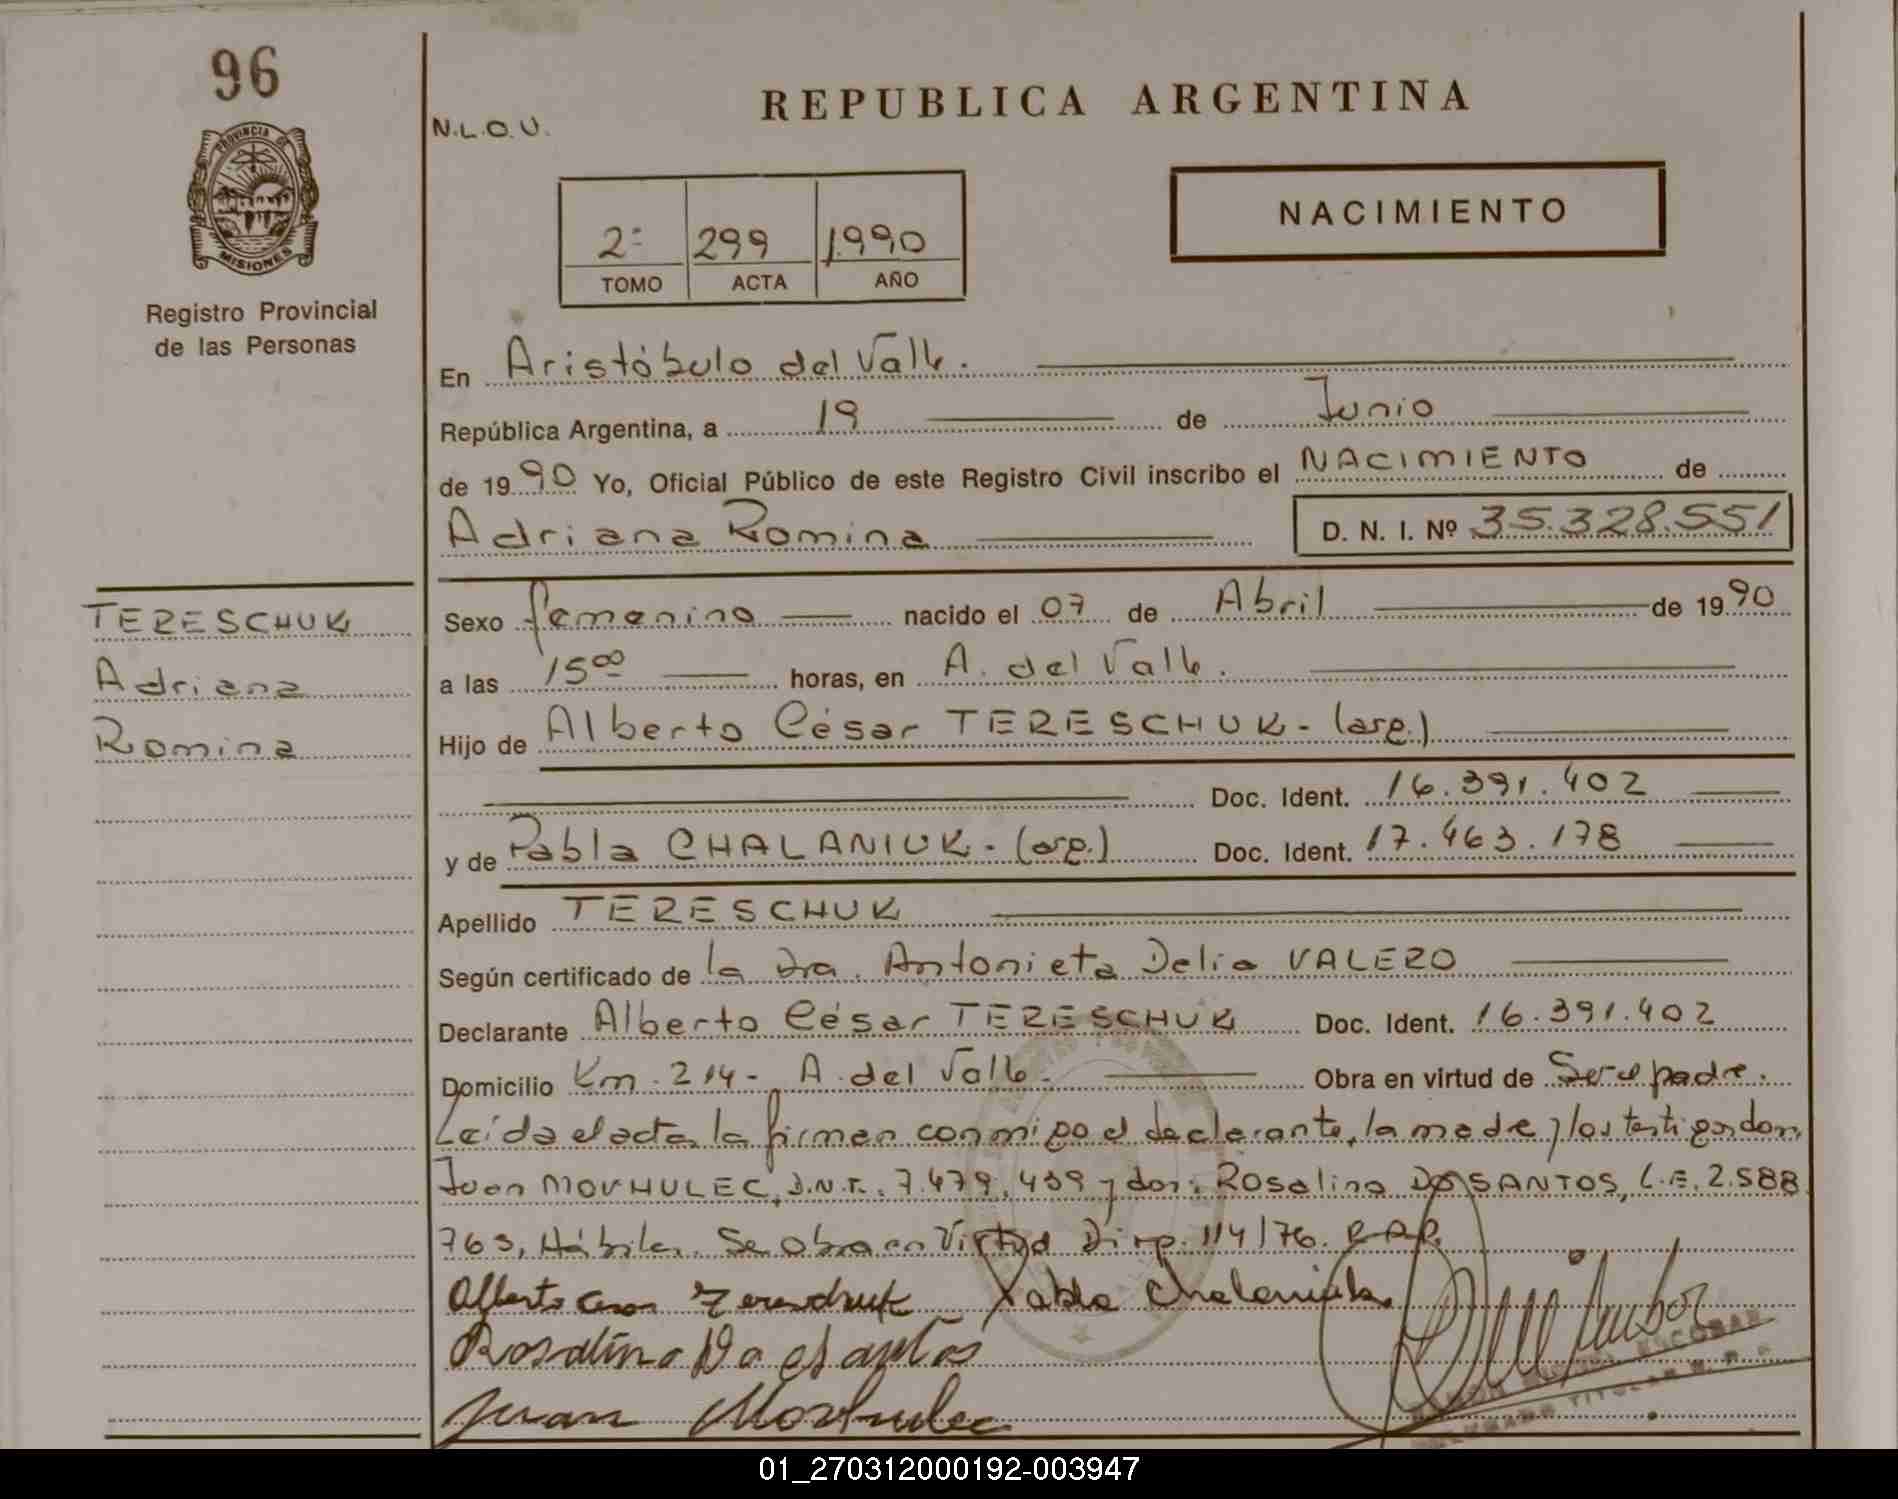 96
PROVINCIA DE
MISIONES
Registro Provincial
de las Personas
TERESCHUK
Adriana
Romina
N.L.O.U.
REPUBLICA ARGENTINA
NACIMIENTO
2º 299 1.990
TOMO ACTA AÑO
En Aristóbulo del Valle.
República Argentina, a 19 de Junio
de 1990 Yo, Oficial Público de este Registro Civil inscribo el NACIMIENTO de
Adriana Romina D. N. I. Nº 35.328.551
Sexo femenino nacido el 07 de Abril de 1990
a las 15ºº horas, en A. del Valle.
Hijo de Alberto César TERESCHUK - (arg.)
Doc. Ident. 16.391.402
y de Pabla CHALANIUK - (arg.) Doc. Ident. 17.463.178
Apellido TERESCHUK
Según certificado de la Dra. Antonieta Delia VALERO
Declarante Alberto César TERESCHUK Doc. Ident. 16.391.402
Domicilio Km. 214 - A. del Valle. Obra en virtud de Ser el padre.
Leída el acta, la firman conmigo el declarante, la madre y los testigos don,
Juan MOVHULEC, D.N.I. 7.479.439 y don: Rosalino DOS SANTOS, L.E. 2.588
763, Hábiles. Se obra en Virtud Disp. 114/76. R.P.P.
Alberto Cesar Tereschuk Pabla Chalaniuk
Rosalino Do Santos
Juan Movhulec
ESCOBAR
TITULAR
01_270312000192-003947